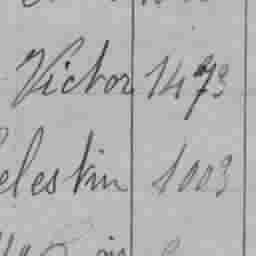 Victor 1473
elestin 1003